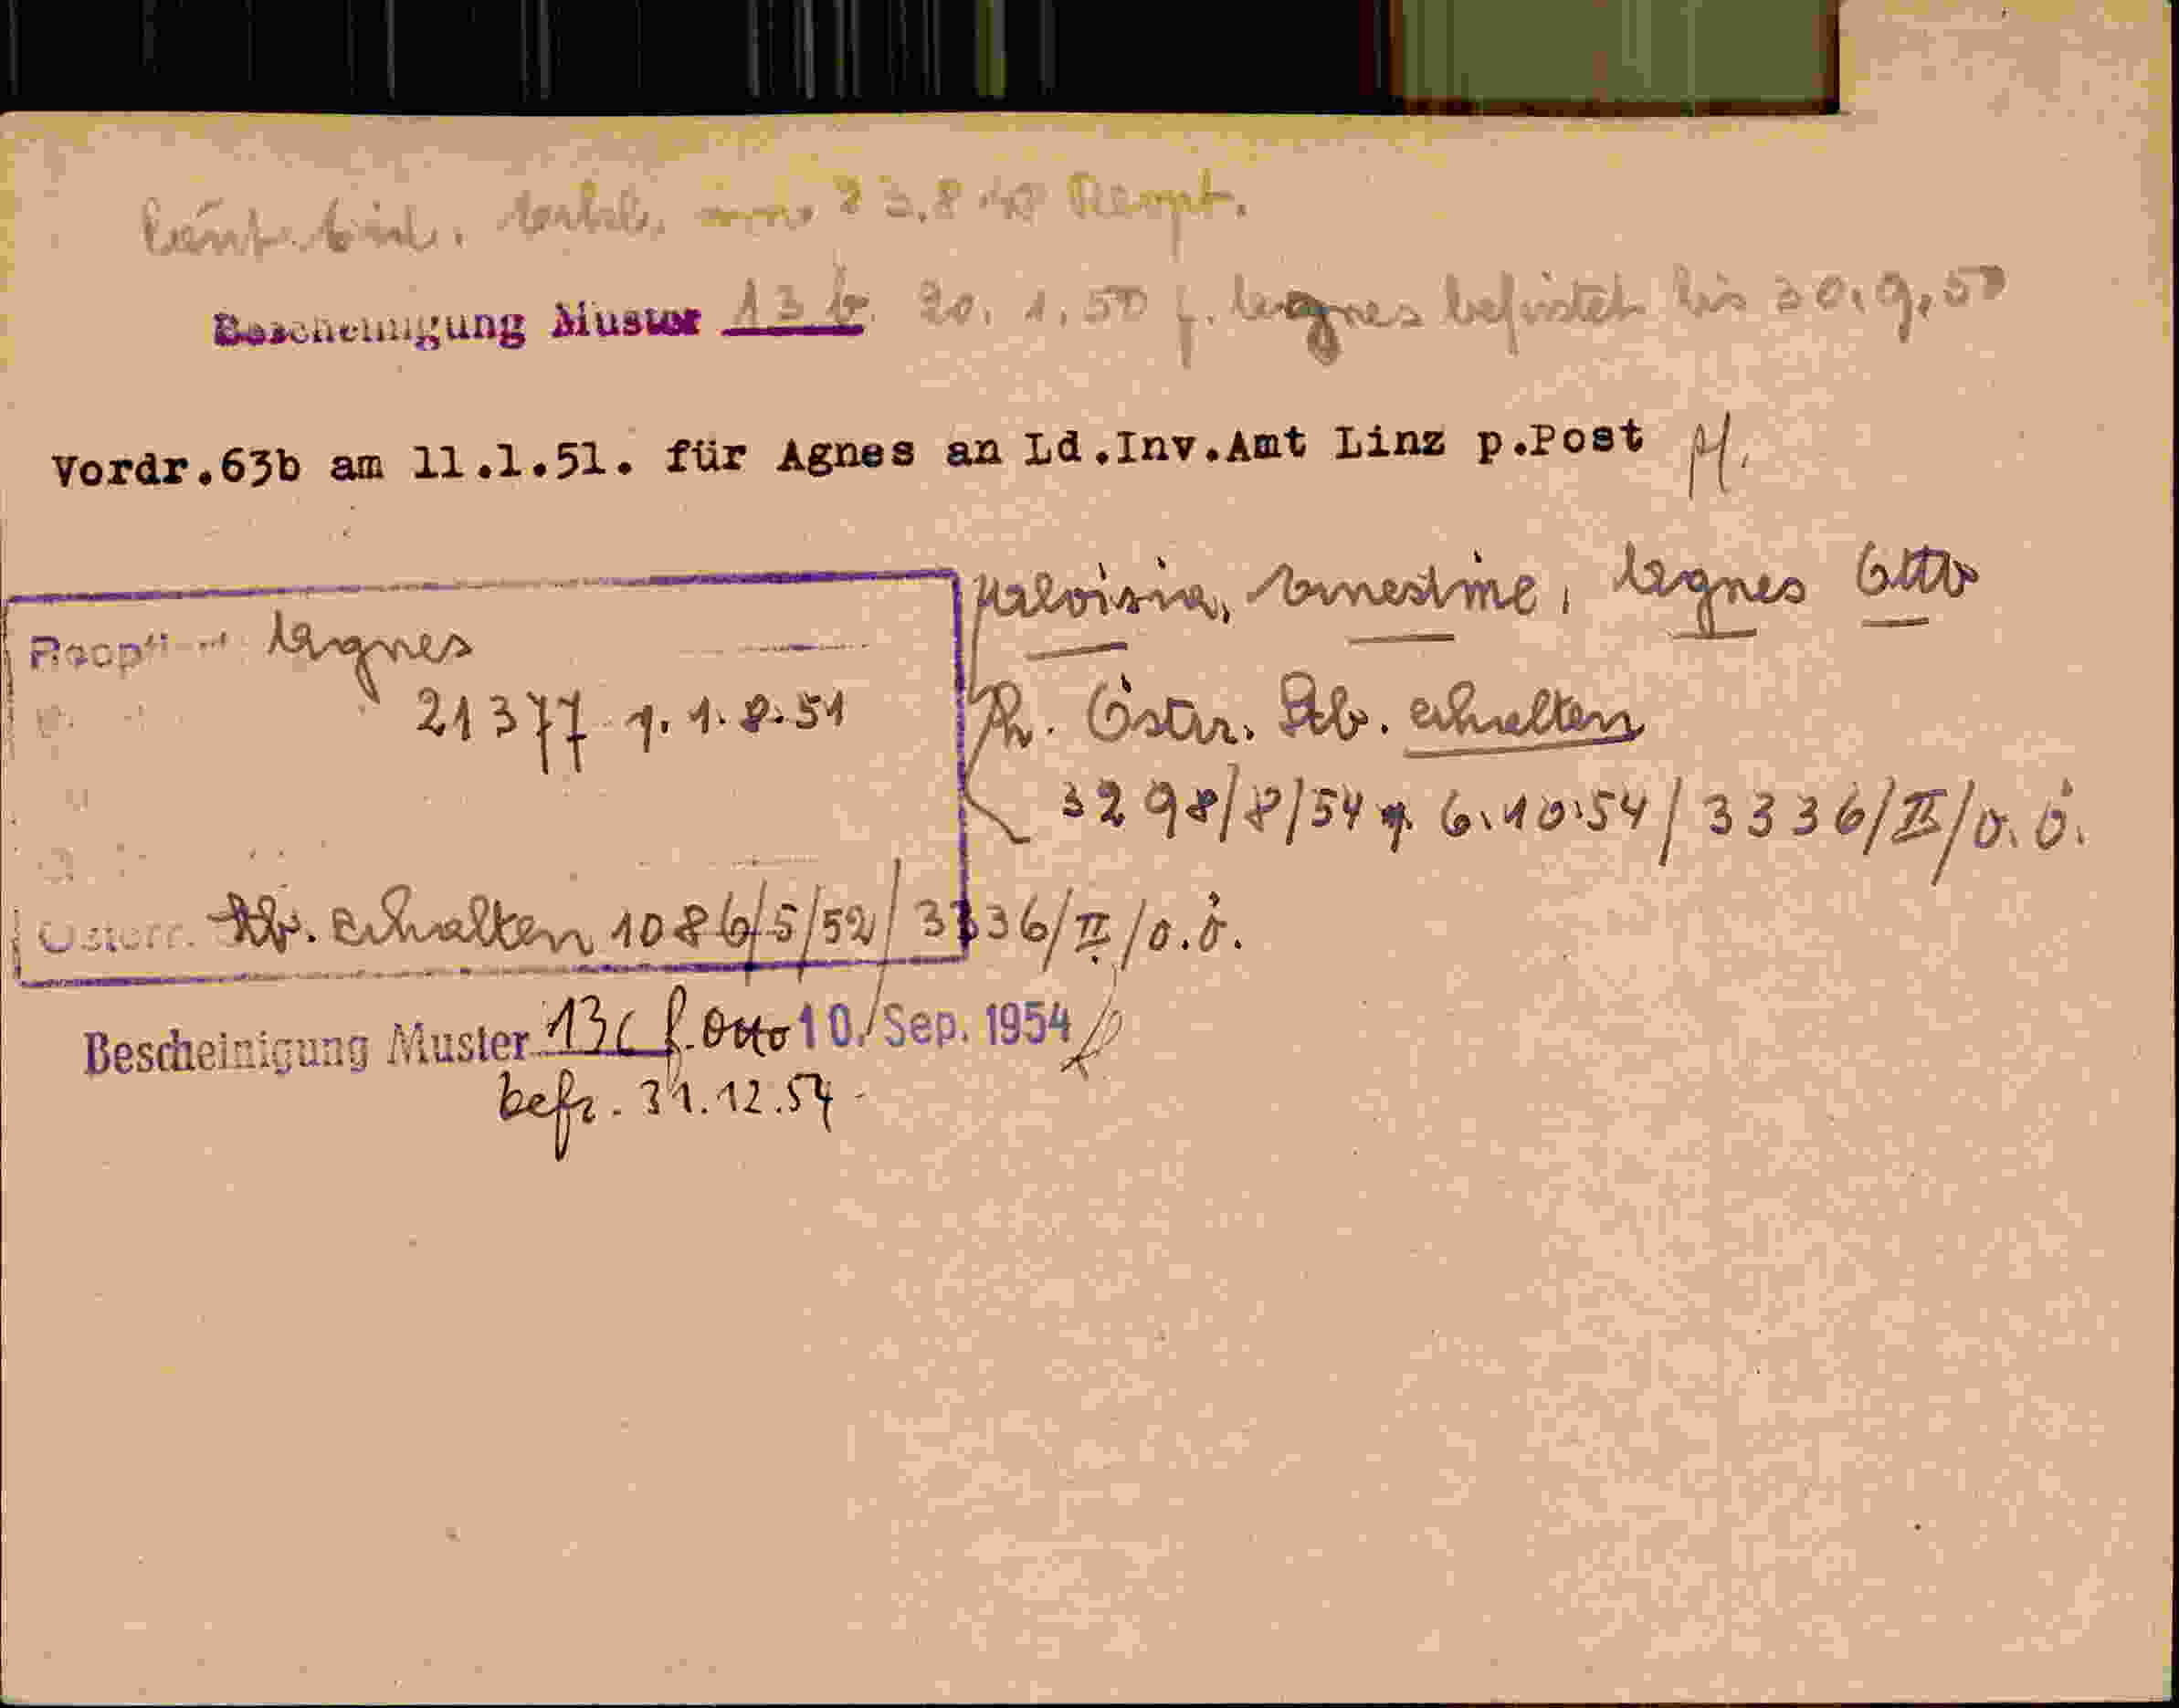 23.8.48 Reopt.
Bescheinigung Muster 13 b. 20.1.50 f. Agnes befristet bis 30.9.50
Vordr.63b am 11.1.51. für Agnes an Ld.Inv.Amt Linz p.Post
Aloisia, Ernestine, Agnes Otto
Reoptiert Agnes
21377 v. 1.8.51
Östr. Stb. erhalten
3298/8/54 v. 6.10.54/3336/II/o.ö.
Österr. Stb. erhalten 1086/5/52/3336/II/o.ö.
Bescheinigung Muster 13c f. Otto 10. Sep. 1954
befr. 31.12.54.